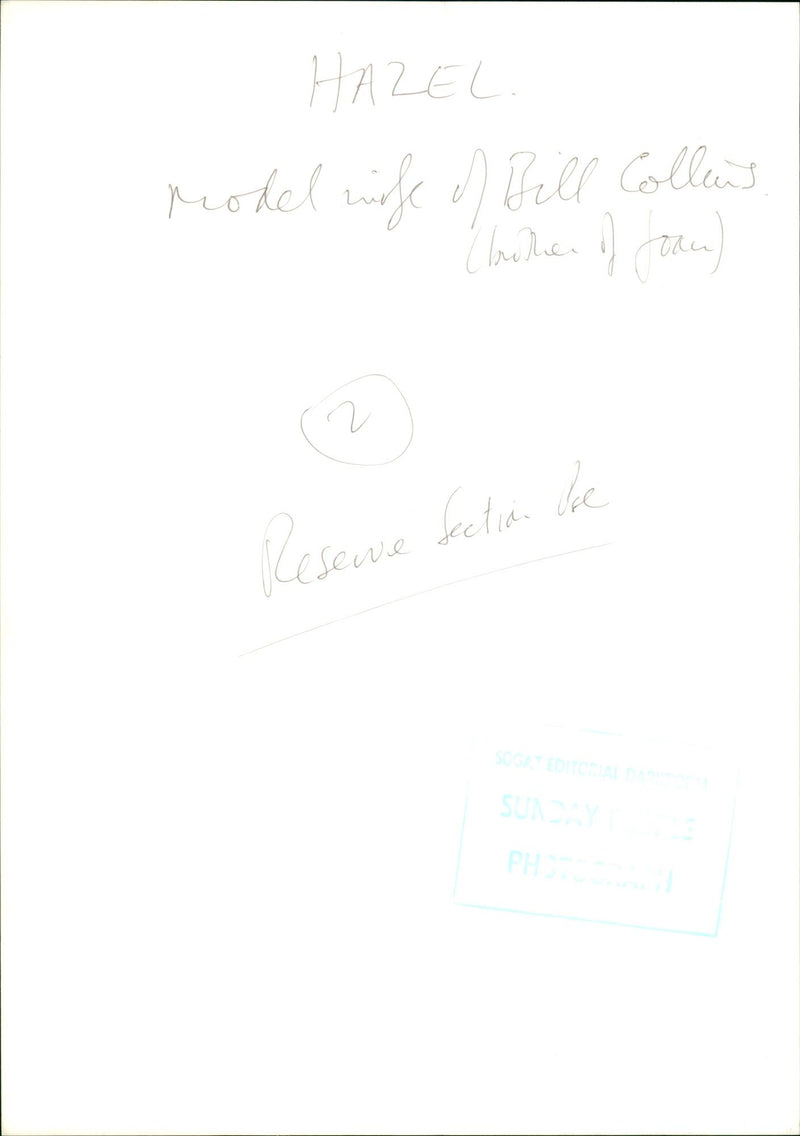 HAZEL.
Model wife of Bill Collins.
(brother of Joan)
2
Reserve Section Use
SOGAT EDITORIAL DARKROOM
SUNDAY PEOPLE
PHOTOGRAPH